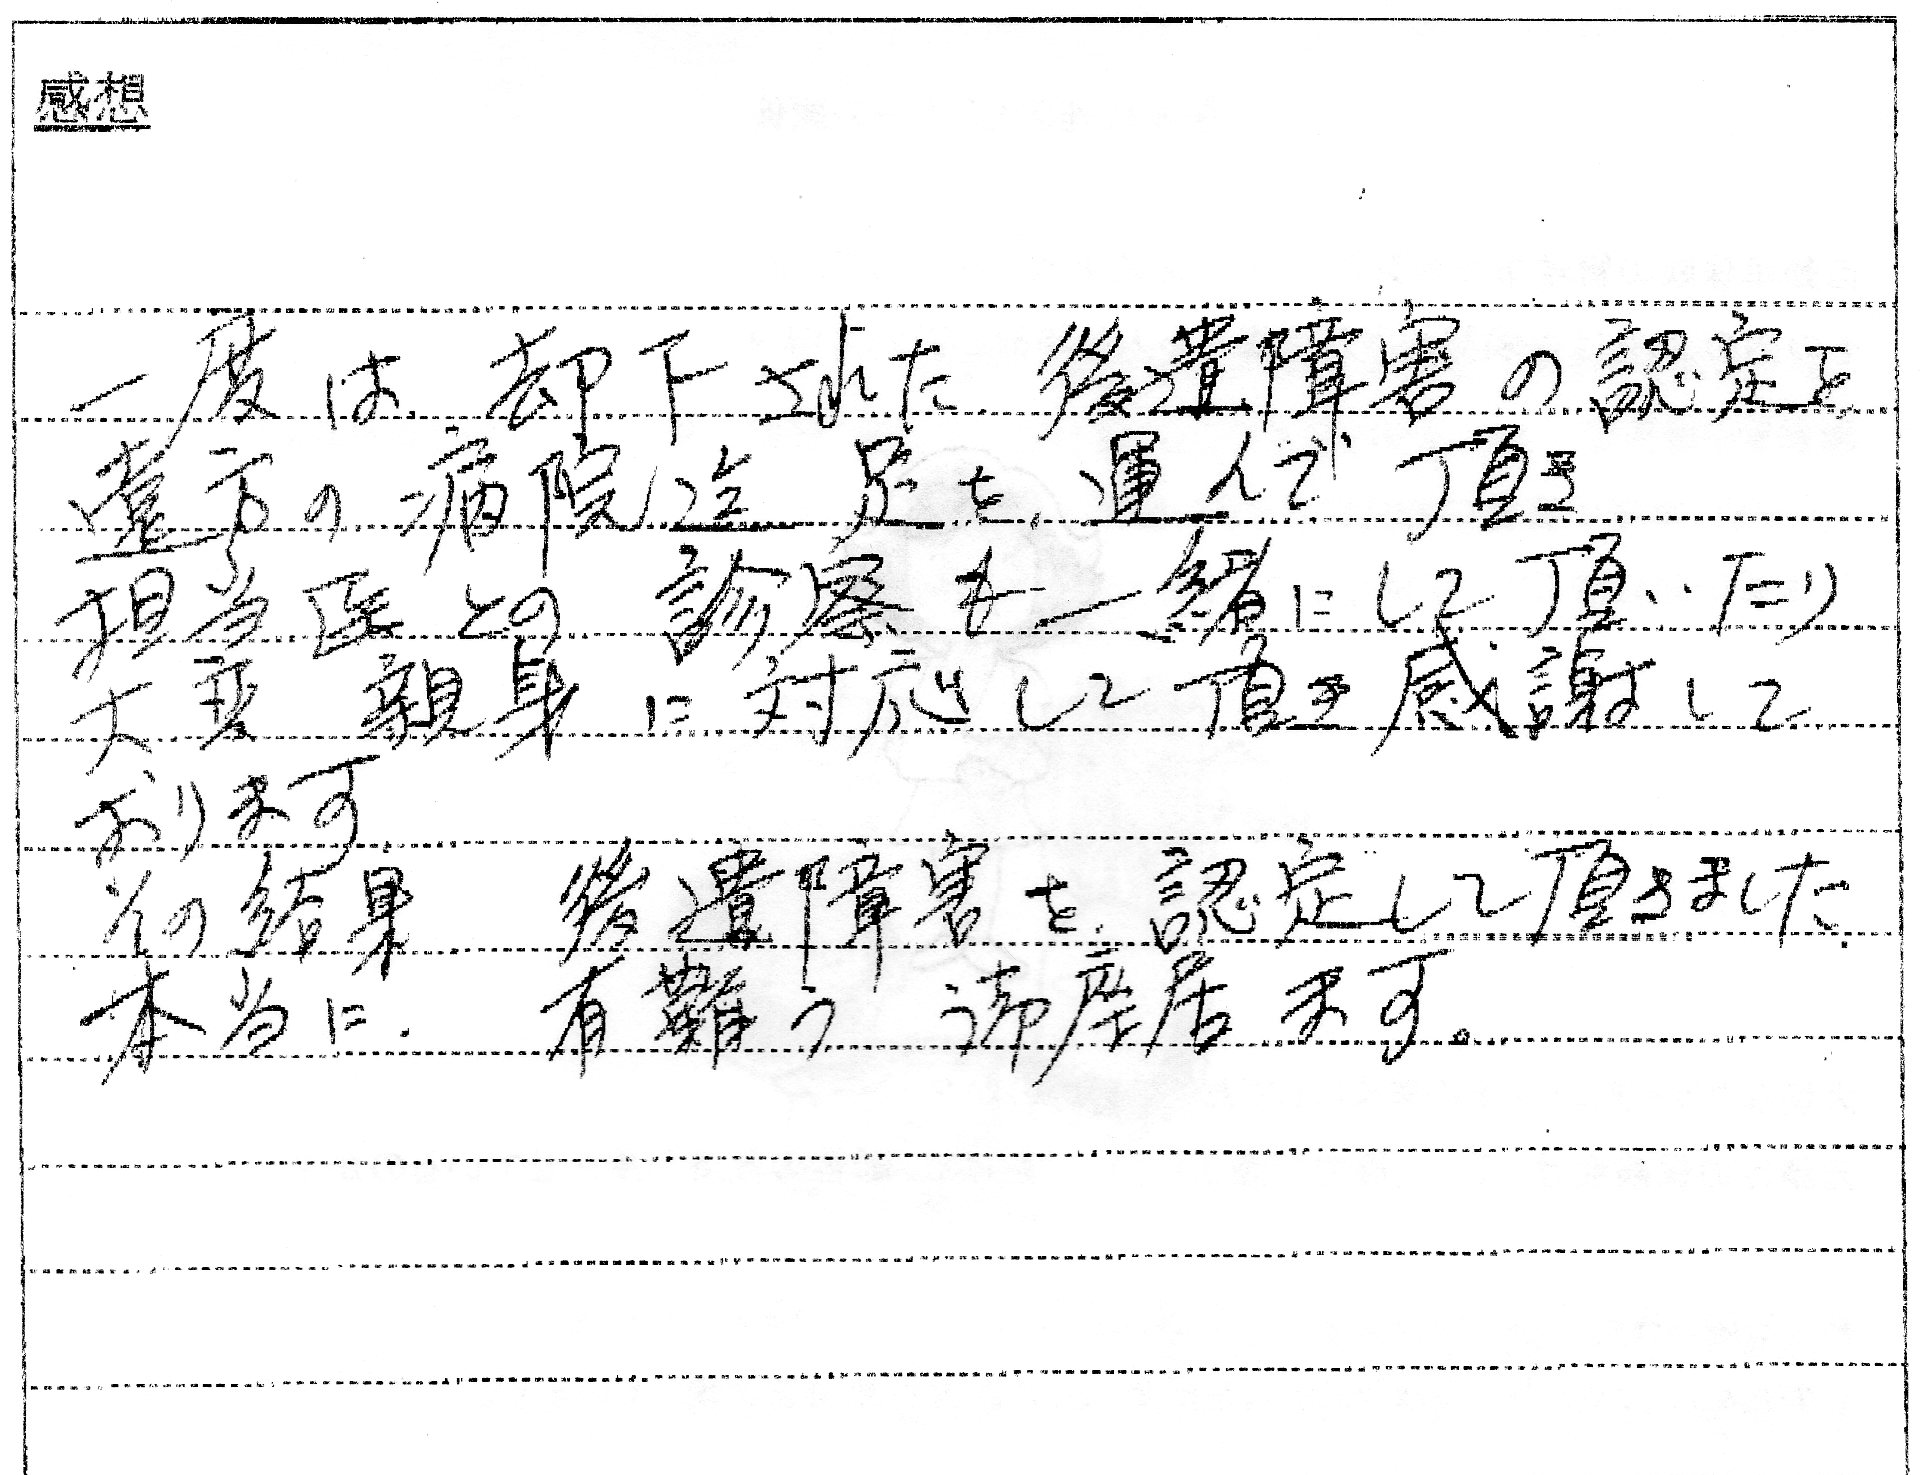 感想
一度は 却下された 後遺障害の認定を
遠方の病院迄 足を運んで 頂き
担当医との 診察も一緒にして頂いたり
大変 親身に対応して頂き感謝して
おります
その結果 後遺障害を認定して頂きました
本当に 有難う 御座居ます。